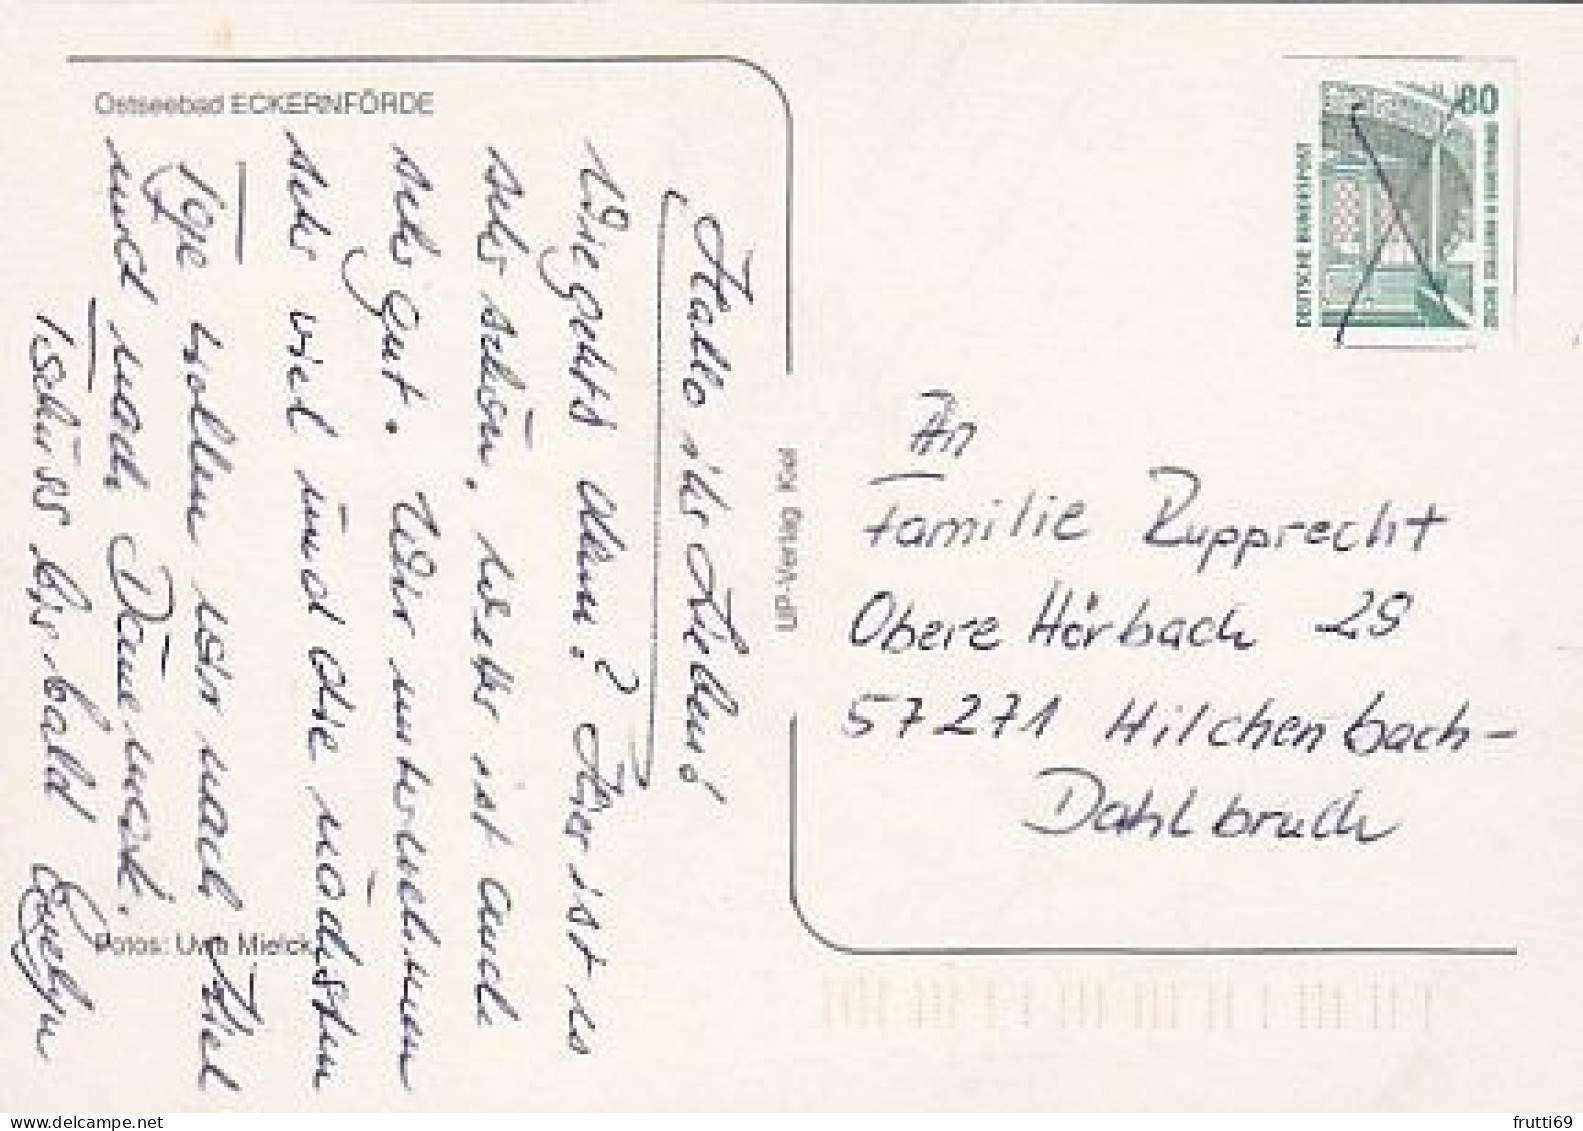 Ostseebad ECKERNFÖRDE
Hallo ihr Lieben!
Wie gehts denn? Hier ist es
sehr schön, Wettr ist auch
sehr gut. Wir unternehmen
sehr viel und die nächsten
Tage wollen wir nach Kiel
und nach Dänemark.
Tschüss bis bald Evelyn
Fotos: Uwe Mielck
UP-Verlag Kiel
80
DEUTSCHE BUNDESPOST
ZECHE ZOLLERN II DORTMUND
An
Familie Rupprecht
Obere Hörbach 29
57271 Hilchenbach-
Dahlbruch
frutti69